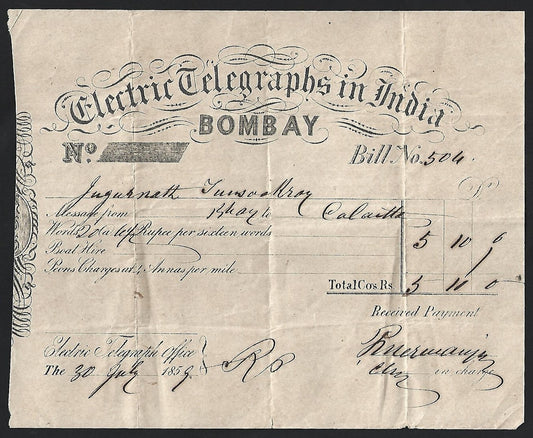 Electric Telegraphs in India
BOMBAY
No. Bill. No. 504.
Jugurnath
Message from Bbay to Calcutta
Words 20 a Rupee per sixteen words 5 10 0
Boat Hire
Peons Charges at Annas per mile
Total Co's Rs 5 10 0
Received Payment
Electric Telegraph Office
The 30 July 1859
in charge